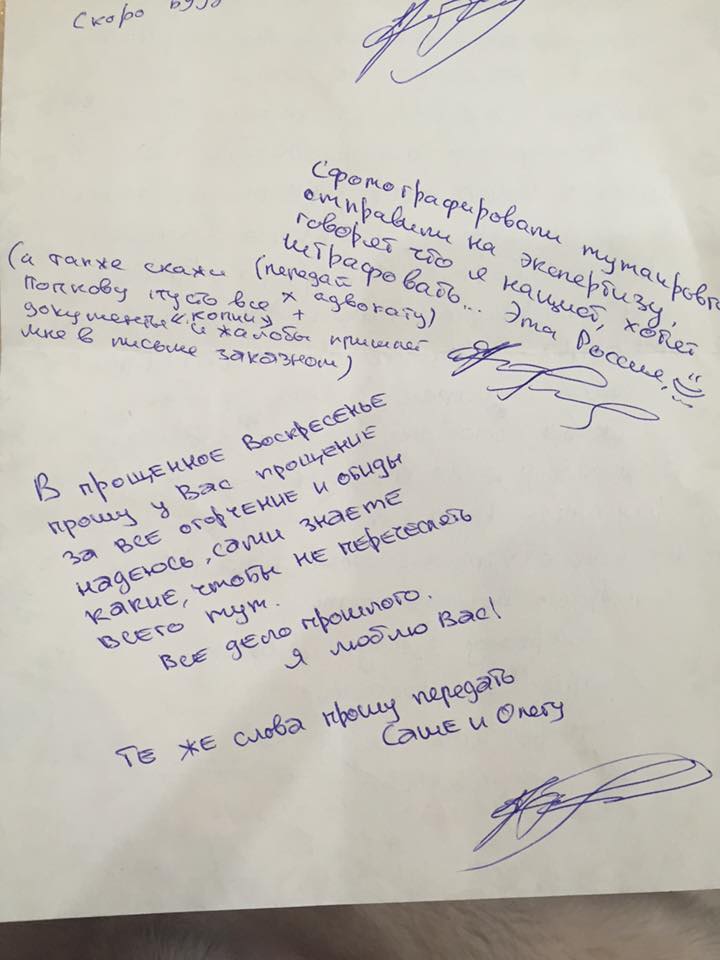 Скоро буду
Сфотографировали тутаировки
отправили на экспертизу,
говорят что я нацист, хотят
штрафовать... Эта Россия,
(а также скажи (передай
Попкову пусть все × адвокату)
документы "копии" +
и жалобы пришлёт
мне в письме заказном)
В прощенное Воскресенье
прошу у Вас прощение
за все огорчение и обиды
надеюсь, сами знаете
какие, чтобы не перечеслять
всего тут.
Все дело прошлого.
Я люблю Вас!
Те же слова прошу передать
Саше и Олегу